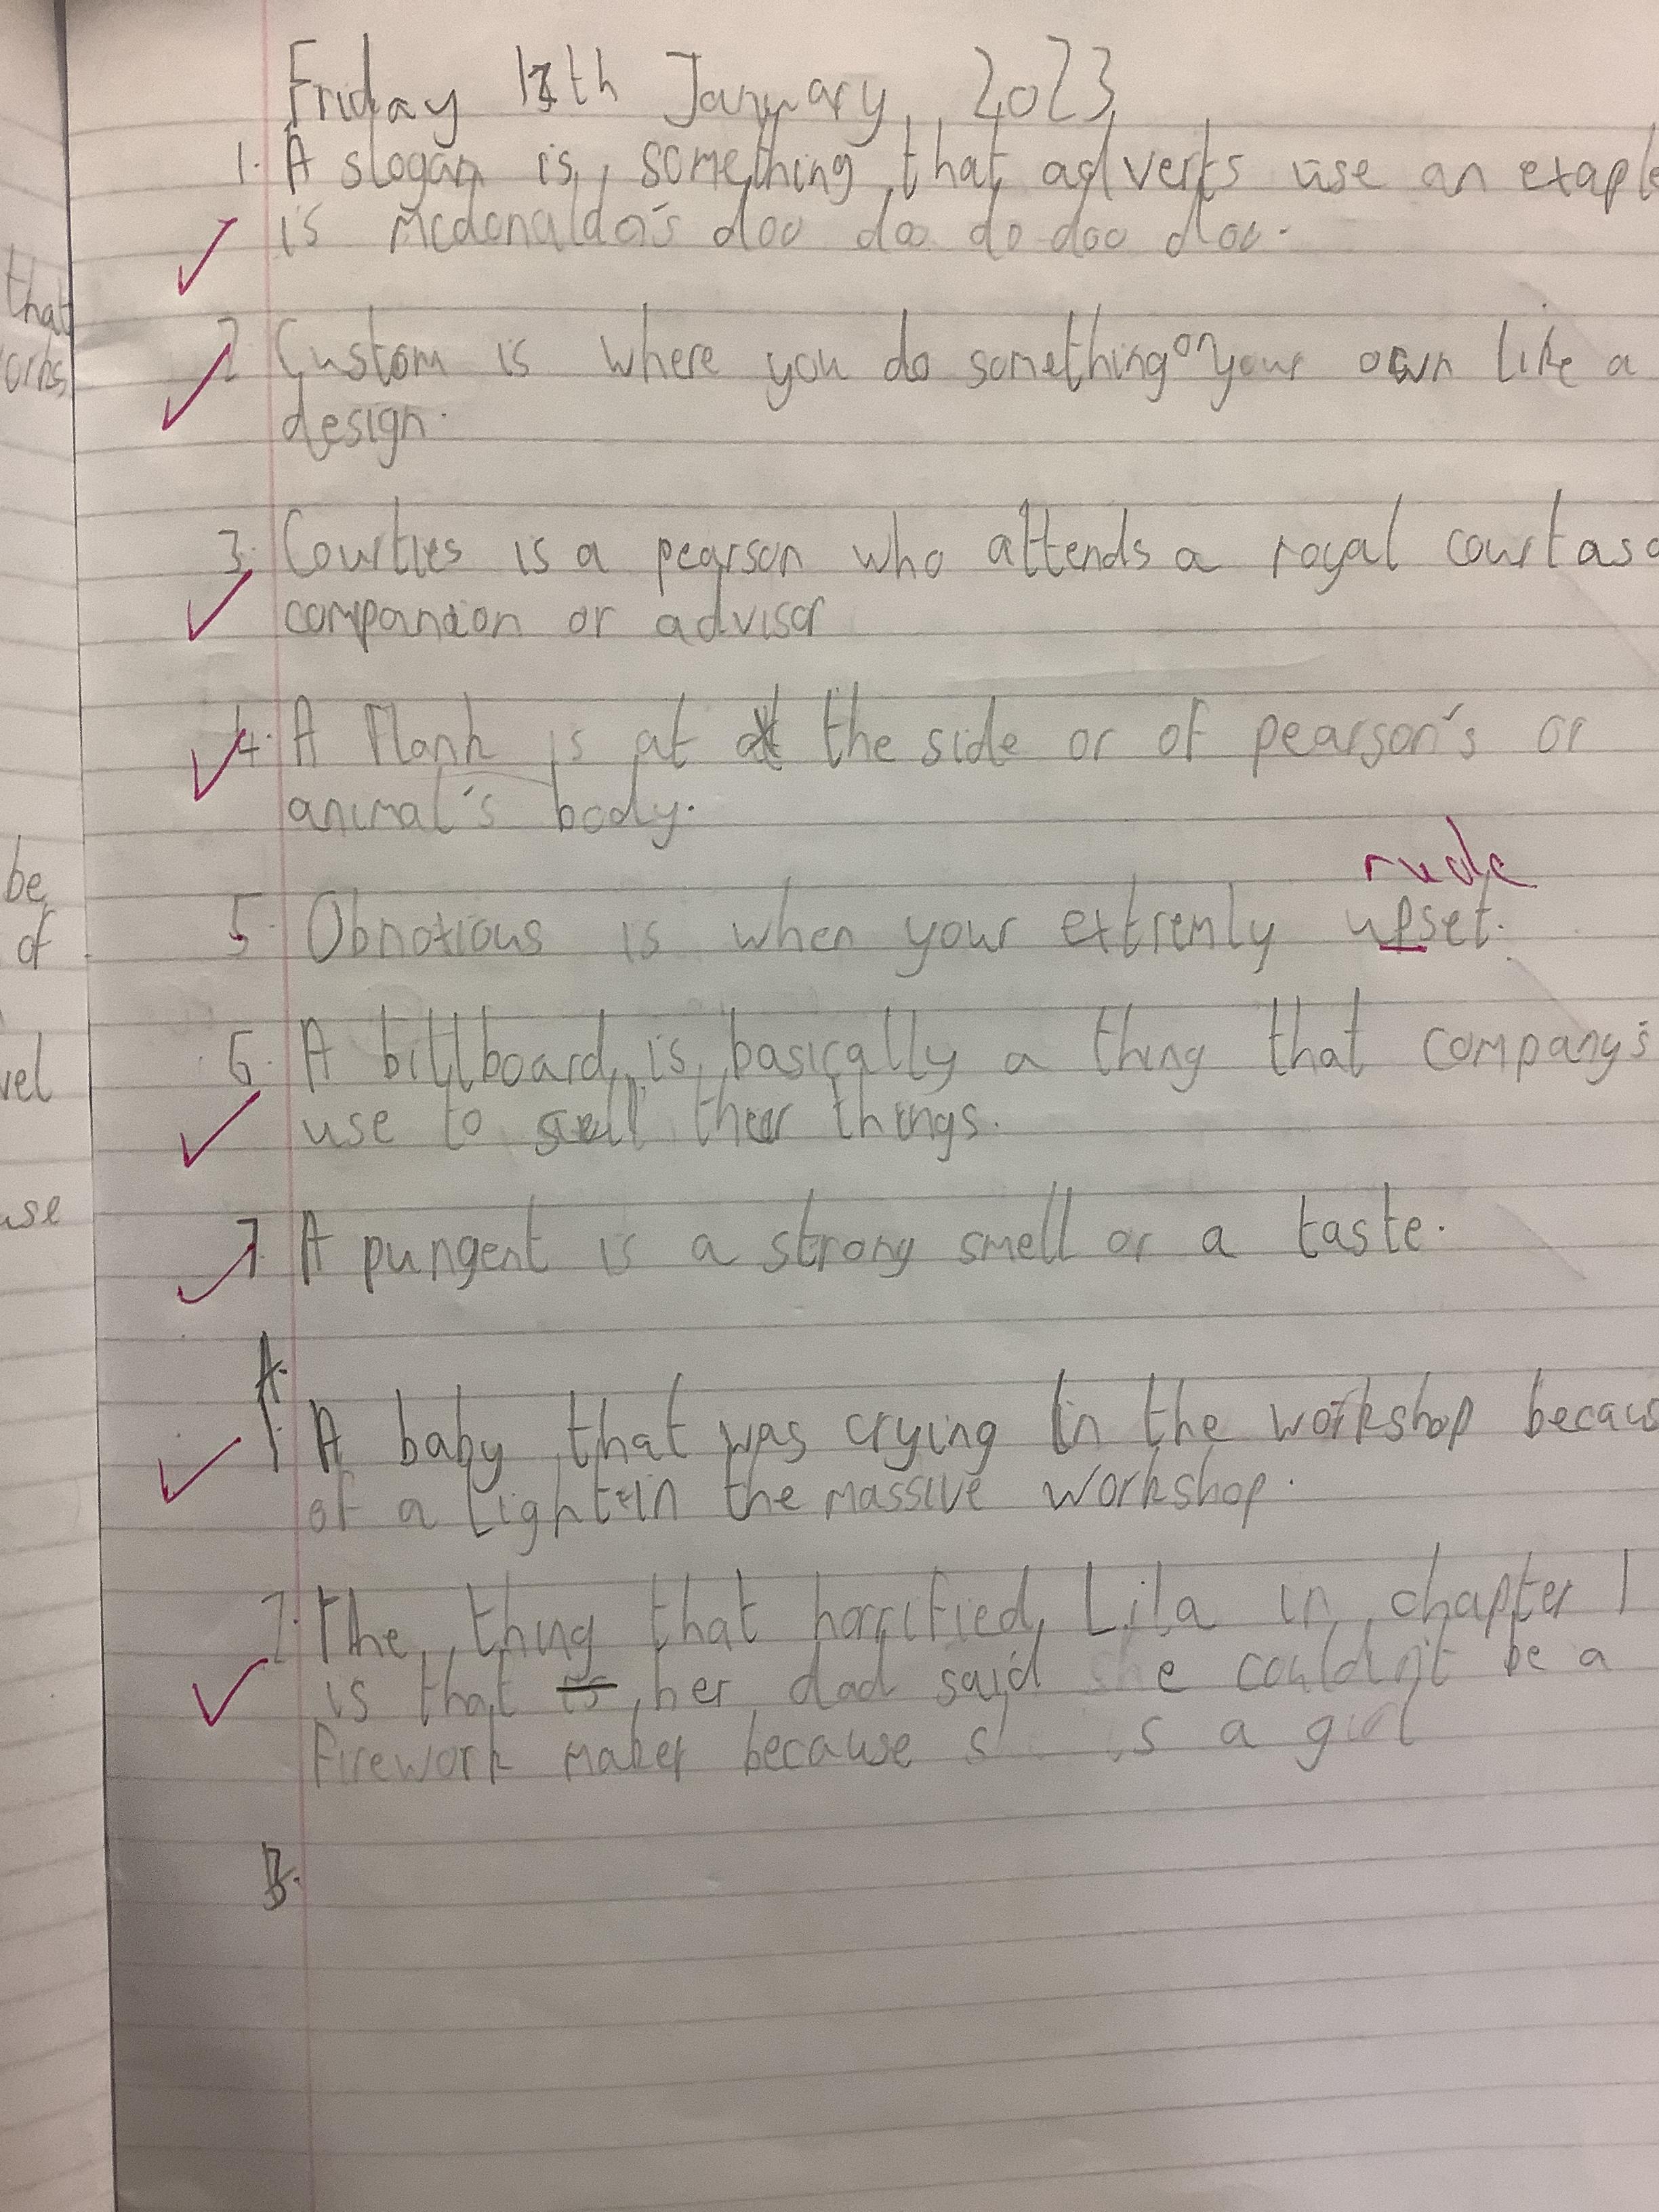 Friday 13th January 2023
1. A slogan is something that adverts use an exaple
is Mcdonaldo's doo doo do doo doo.
2 Custom is where you do something on your own like a
design.
3. Courties is a pearson who attends a royal court as a
companion or advisor
4. A Flank is at the side or of pearson's or
animal's body.
rude
5. Obnoxious is when your extremly upset.
6. A billboard is basically a thing that company's
use to sell their things.
7. A pungent is a strong smell or a taste.
A.
1 A baby that was crying in the workshop becaus
of a light in the massive workshop.
2. The thing that horrified Lila in chapter 1
is that is her dad said she couldn't be a
Firework maker because is a girl
B.
that
orks
be
of
vel
use